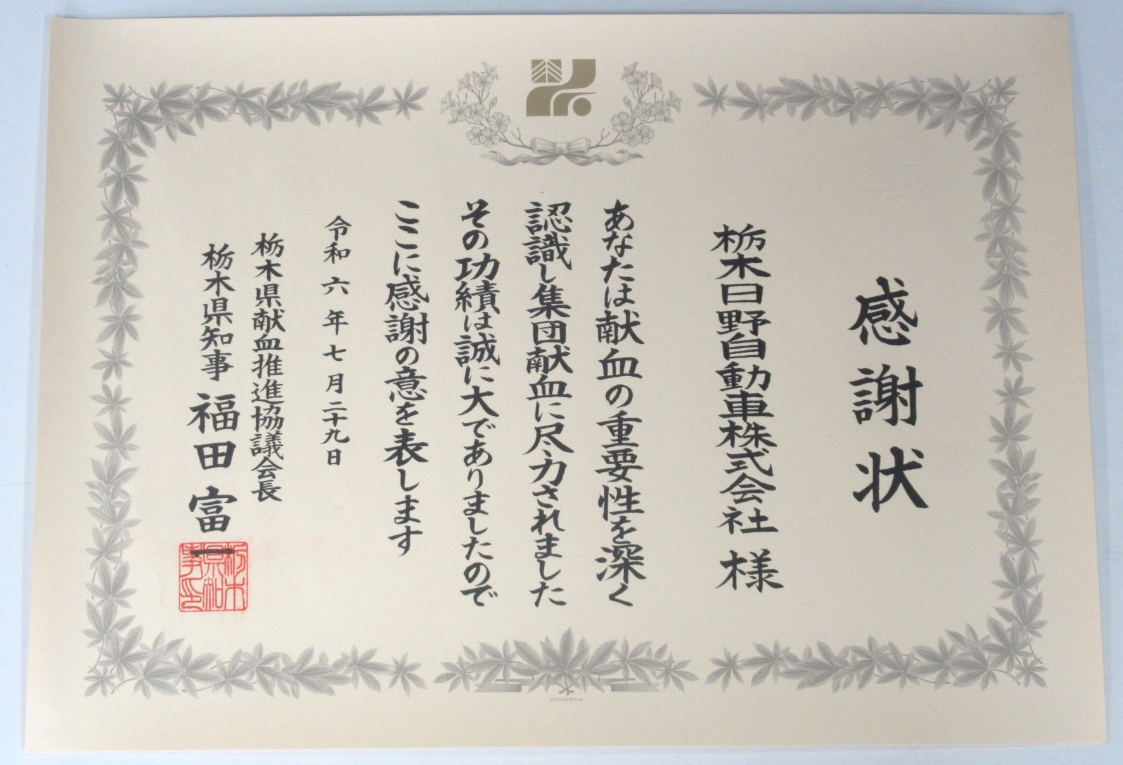 感謝状
栃木日野自動車株式会社 様
あなたは献血の重要性を深く
認識し集団献血に尽力されました
その功績は誠に大でありましたので
ここに感謝の意を表します
令和六年七月二十九日
栃木県献血推進協議会長
栃木県知事 福田富一